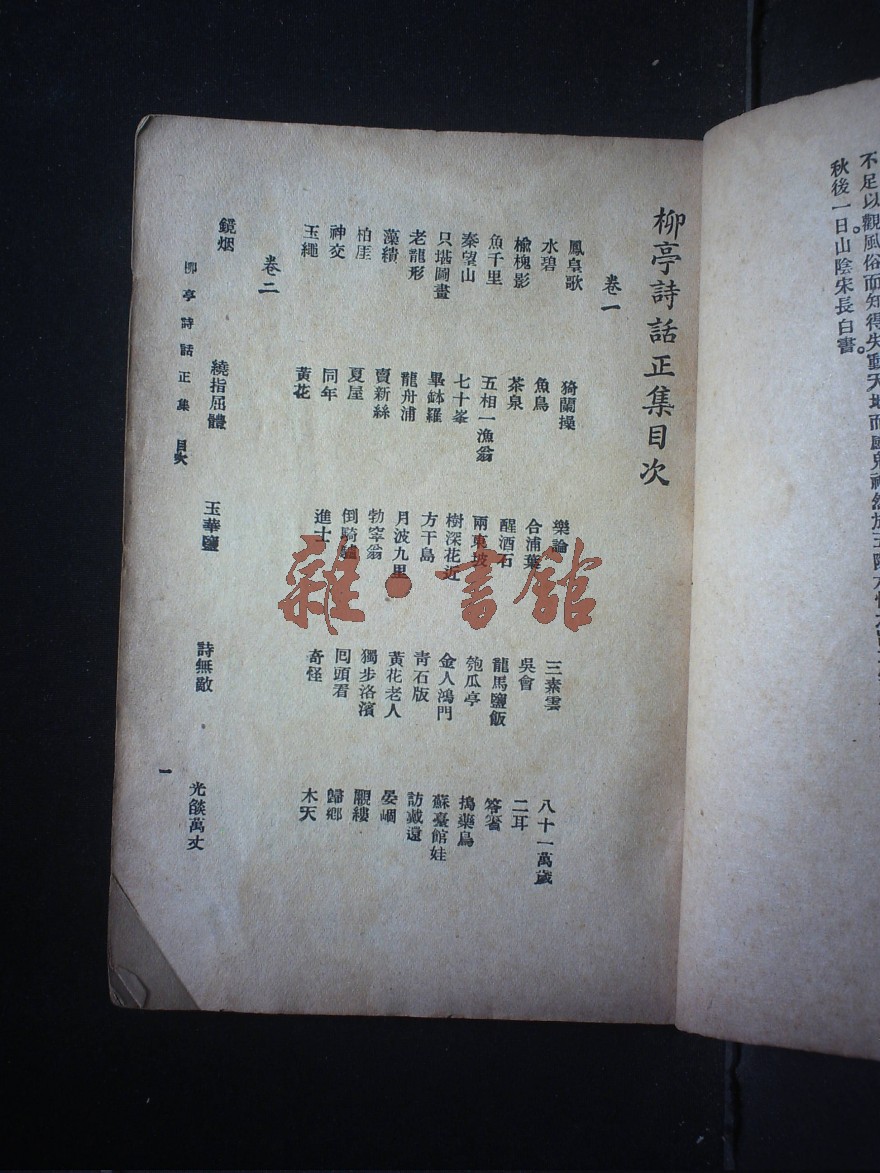 不足以觀風俗而知得失動天地而感鬼神然
秋後一日山陰宋長白書
柳亭詩話正集目次
卷一
鳳皇歌 猗蘭操 樂論 三素雲 八十一萬歲
水碧 魚鳥 合浦葉 吳會 二耳
楡槐影 茶泉 醒酒石 龍馬鹽飯 笭箵
魚千里 五相一漁翁 兩東坡 匏瓜亭 搗藥鳥
秦望山 七十峯 樹深花近 金人鴻門 蘇臺館娃
只堪圖畫 畢鉢羅 方干島 青石版 訪戴還
老龍形 龍舟浦 月波九里 黃花老人 晏崓
藻繢 賣新絲 勃窣翁 獨步洛濱 覼縷
柏厓 夏屋 倒騎驢 囘頭看 歸鄉
神交 同年 進士 奇怪 木天
玉繩 黃花
卷二
鏡烟 繞指屈體 玉華鹽 詩無敵 光燄萬丈
柳亭詩話正集 目次
一
雜·書館